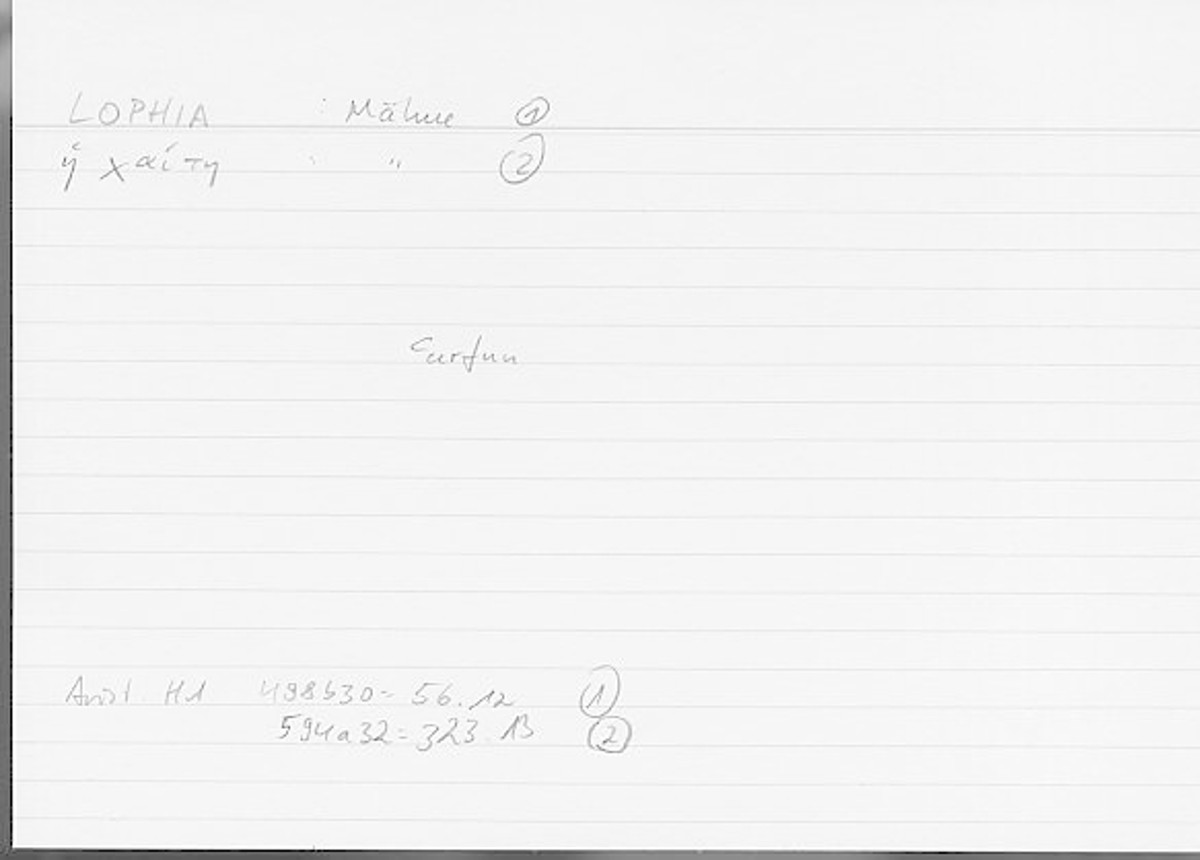 LOPHIA : Mähne ①
ἡ χαίτη : " ②
Arist. H1 498b30 = 56.12 ①
594a32 = 323.13 ②